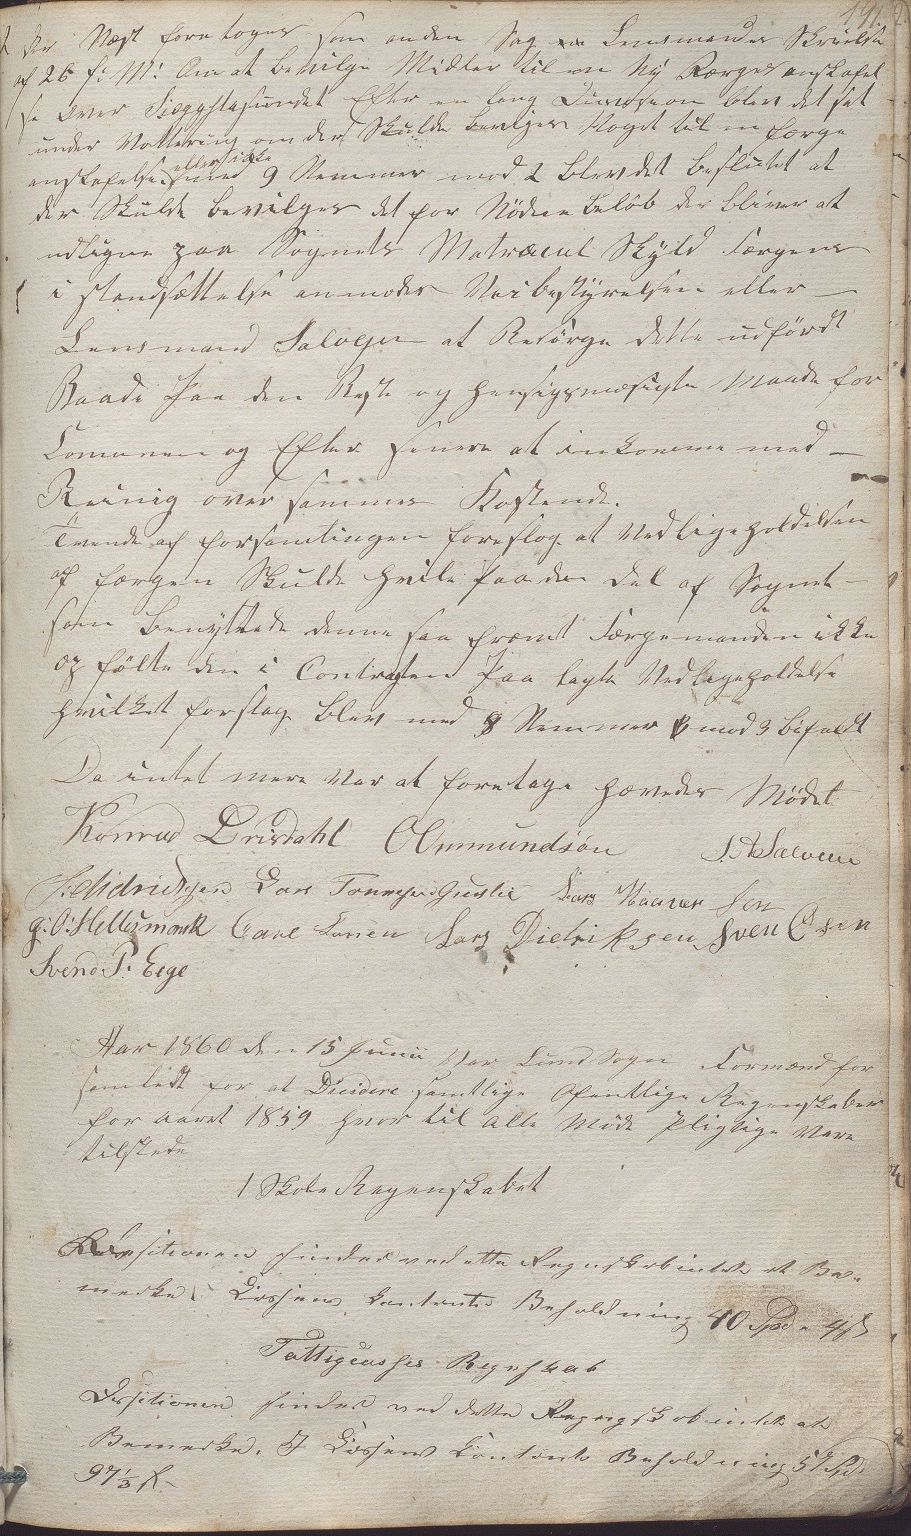 191.
Der Næst foretoges som anden Sag en Lensmandes Skrivelse
af 26 f: M: Om at bevilge Midler til en Ny Færges anskafel
se Over Siregsstasundet Efter en lang Discusion blev det sat
under Vottering om der Skulde beviges Noget til en færge
anskafelse eller ikke med 9 Stemmer mod 2 blev det besluttet at
der Skulde bevilges det for Nødne beløb der bliver at
udligne paa Sognets Matrecul Skyld Færgens
i standsættelse anmodes Veibestyrelsen eller –
Lensmand Salvesen at Besørge dette udførdt
Baade Paa den Beste og hensigsmæsigste Maade for
Comunen og Efter senere at indkomme med –
Reinig over sammes Kostende.
Tvende af forsamlingen foreslog at Vedligeholdelsen
af færgen Skulde hvile paa den del af Sognet –
som Benyttede denne saa fræmt Færgemanden ikke
op fölte den i Contragten Paa lagte Vedlageholdelse
hvilket forslag blev med 8 Stemmer mod 3 bifaldt
Da intet mere Var at foretage hævedes Mødet
Konrad Drisdahl O Ommundsøn S. A Salvesen
S. Didriksen Lars Tønnesen Gusli Lars Haaversen
G: O: Hellesmark Carl Larsen Lars Dietriksen Sven Osen
Svend P. Eege
Aar 1860 den 15 Junii Var Lund Sogn Formænd for
samledt for at Decidere samtlige Ofentlige Regenskaber
for Aaret 1859 hvor til Alle Møde Pligtige Vare
tilstede
1 Skole Regenskabet
Desitionen findes ved dette Regnskab intet at Be-
merke. Cassens kontante Beholdning 40 Spd 4 ß
Fattigcasses Regnskab
Desitionen findes ved dette Regnskab intet at
Bemerke. Cassens Contante Beholdning 57 Spd.
97 1/3 ß